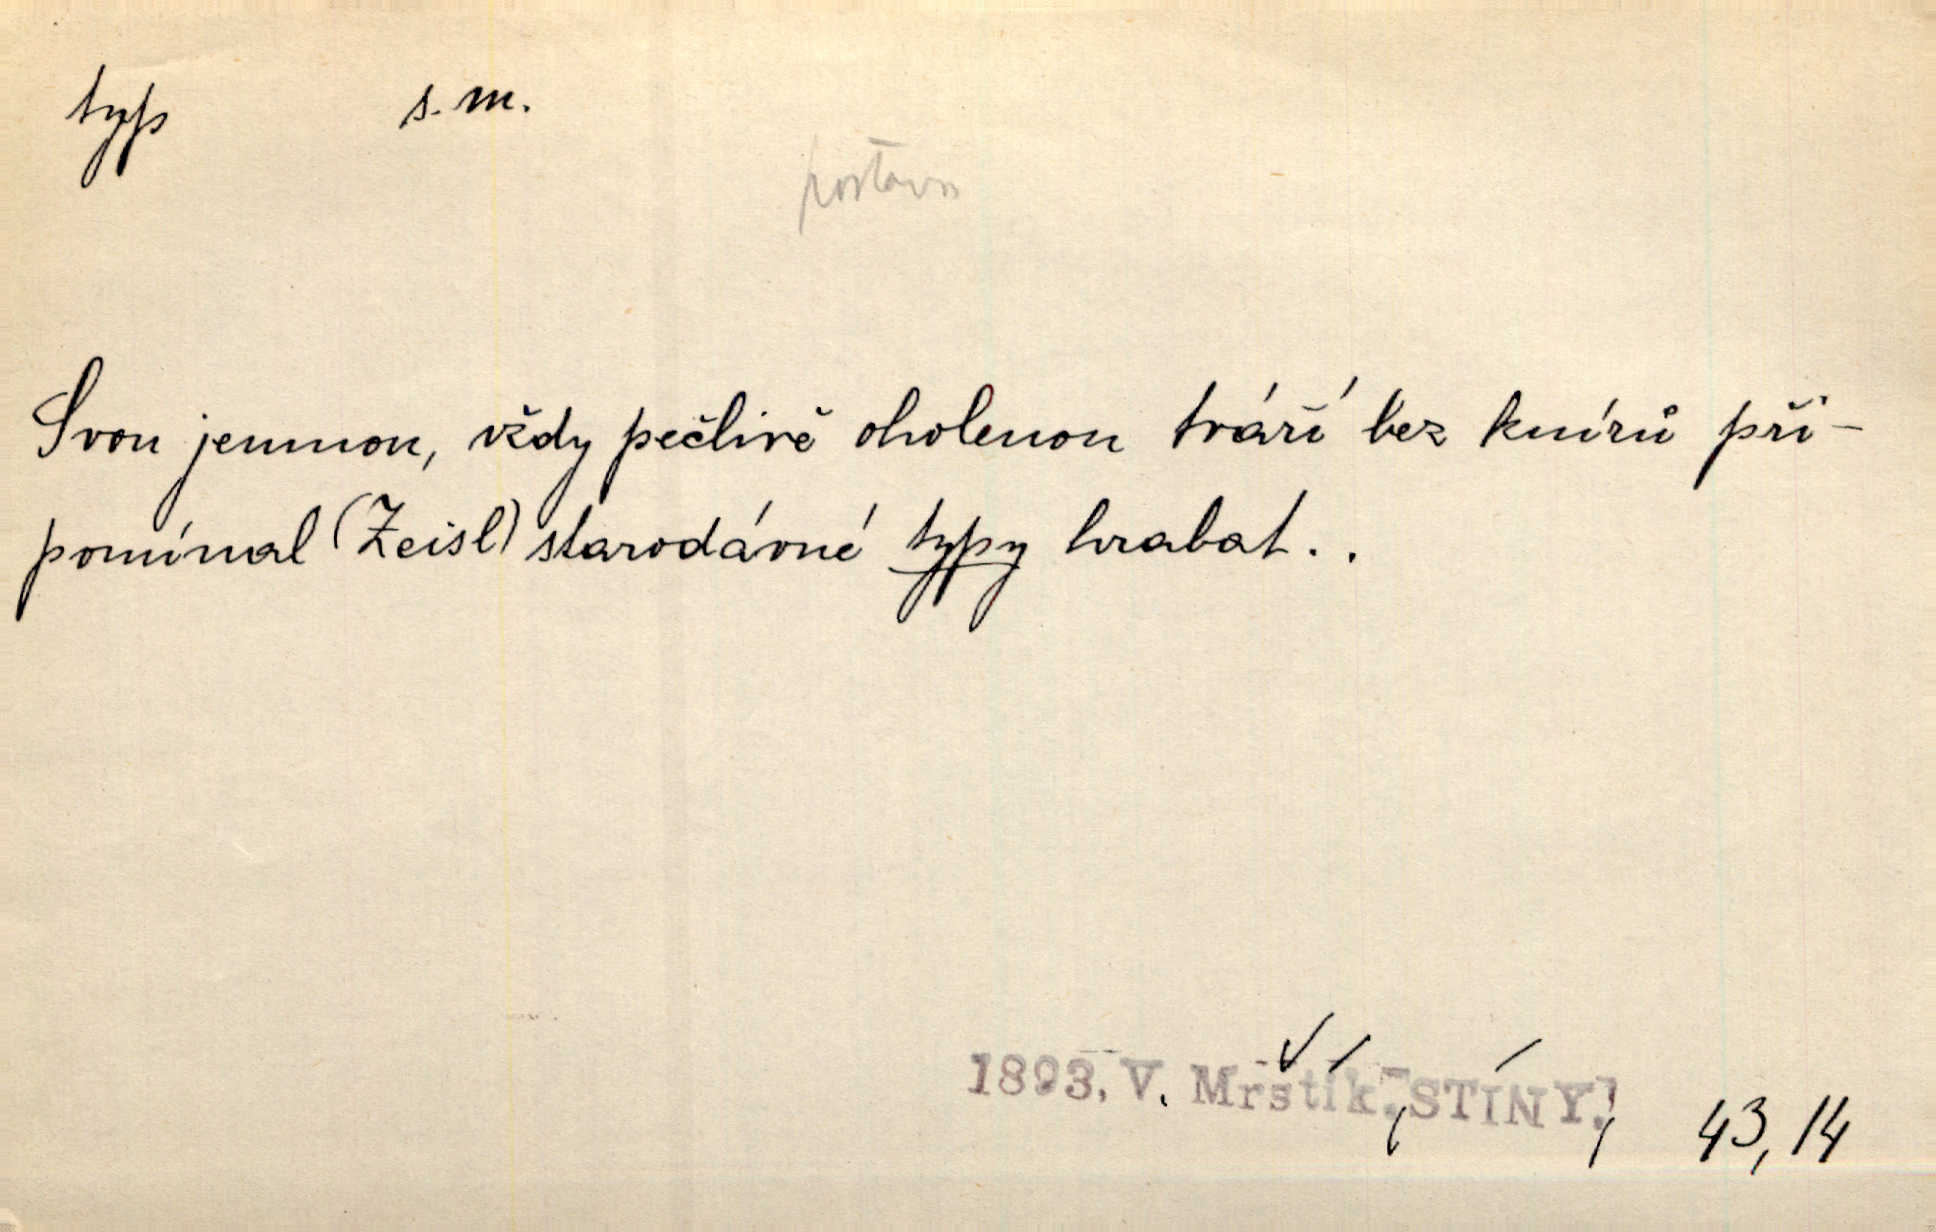 typ s. m.
postava
Svou jemnou, vždy pečlivě oholenou tváří bez knírů při-
pomínal (Zeisl) starodávné typy hrabat. .
1893. V. Mrštík, STÍNY, 43, 14